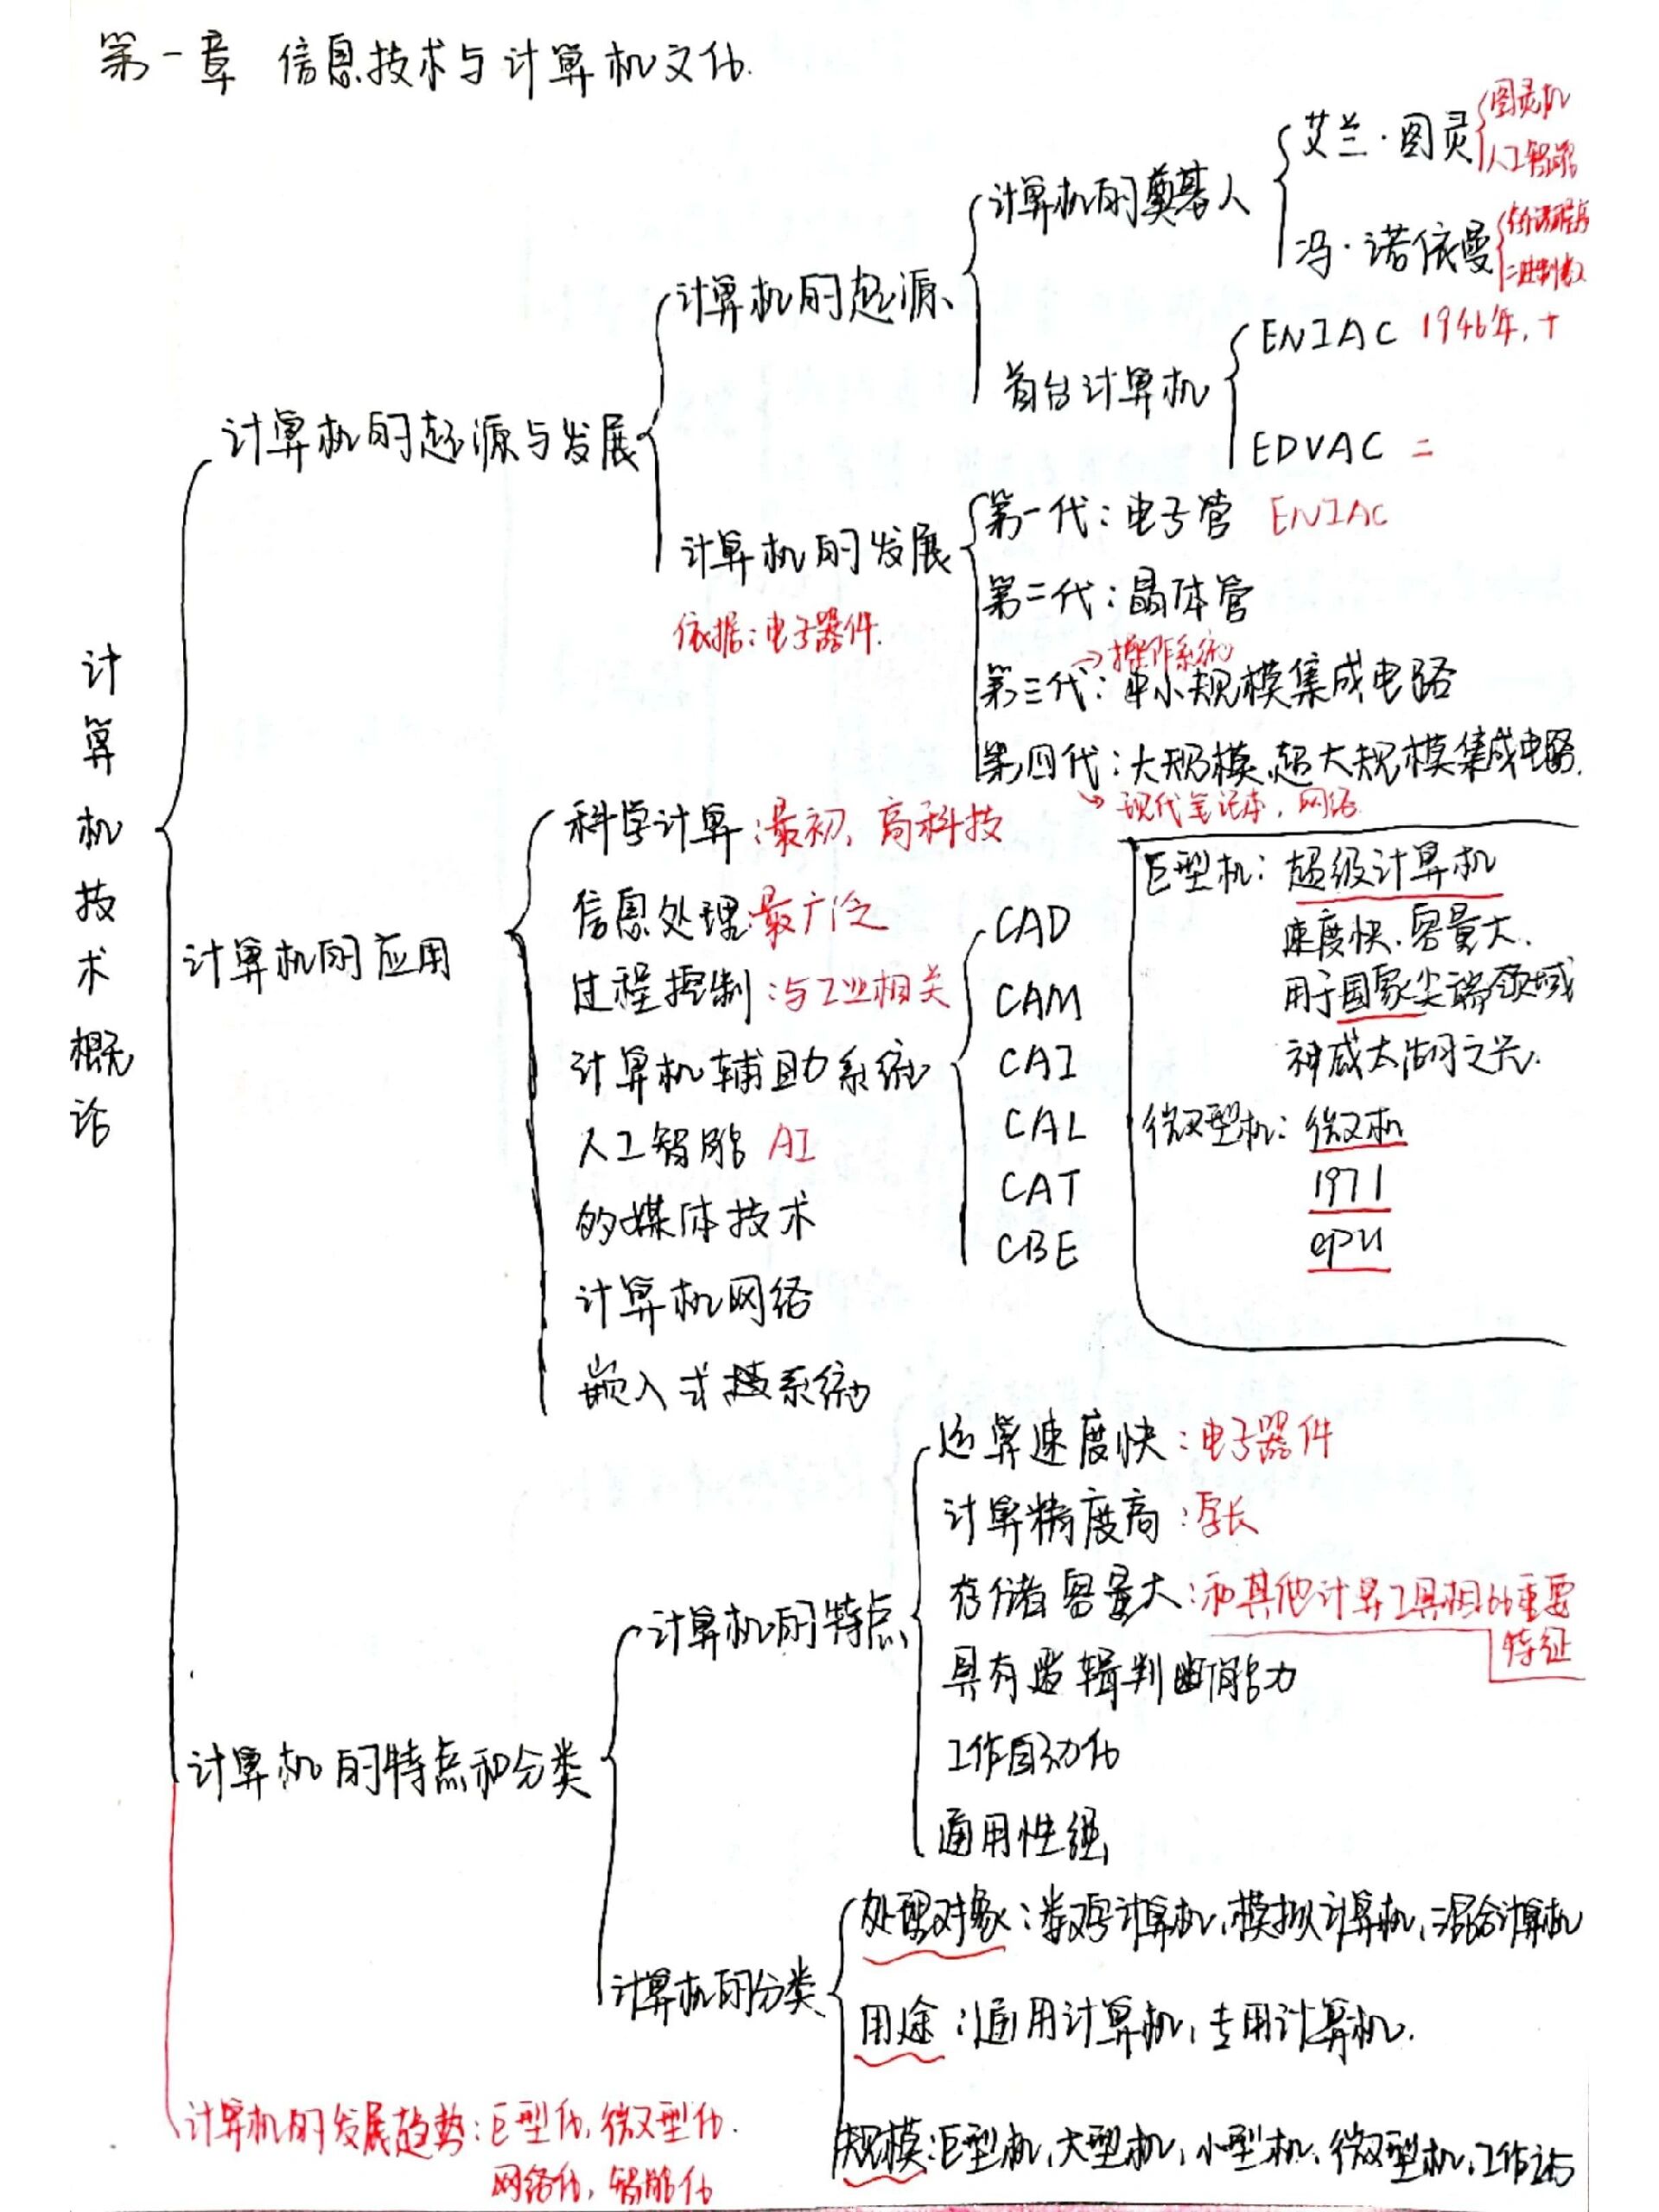 第一章 信息技术与计算机文化
计算机技术概论
计算机的起源与发展
计算机的起源
计算机的奠基人
艾兰·图灵
图灵机
人工智能
冯·诺依曼
存储程序
二进制数
首台计算机
ENIAC 1946年,十
EDVAC 二
计算机的发展
依据:电子器件.
第一代:电子管 ENIAC
第二代:晶体管
→操作系统
第三代:中小规模集成电路
第四代:大规模、超大规模集成电路.
→现代笔记本,网络
计算机的应用
科学计算:最初,高科技
信息处理:最广泛
过程控制:与工业相关
计算机辅助系统
CAD
CAM
CAI
CAL
CAT
CBE
人工智能 AI
的媒体技术
计算机网络
嵌入式系统
巨型机:超级计算机
速度快、容量大、
用于国家尖端领域
神威太湖之光.
微型机:微机
1971
cpu
计算机的特点和分类
计算机的特点
运算速度快:电子器件
计算精度高:字长
存储容量大:和其他计算工具相比重要
特征
具有逻辑判断能力
工作自动化
通用性强
计算机的分类
处理对象:数字计算机,模拟计算机,混合计算机
用途:通用计算机,专用计算机.
规模:巨型机,大型机,小型机,微型机,工作站
计算机的发展趋势:巨型化,微型化.
网络化,智能化